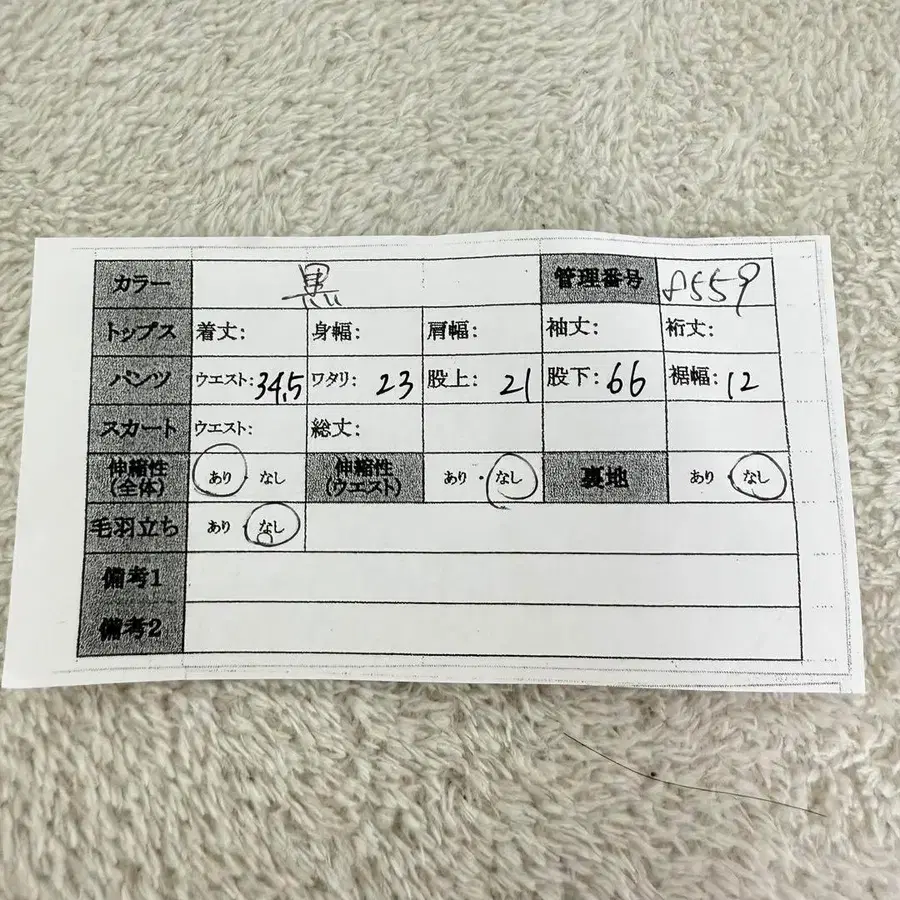 カラー 黒 管理番号 8559
トップス 着丈: 身幅: 肩幅: 袖丈: 裄丈:
パンツ ウエスト: 34.5 ワタリ: 23 股上: 21 股下: 66 裾幅: 12
スカート ウエスト: 総丈:
伸縮性(全体) あり・なし 伸縮性(ウエスト) あり・なし 裏地 あり・なし
毛羽立ち あり・なし
備考1
備考2